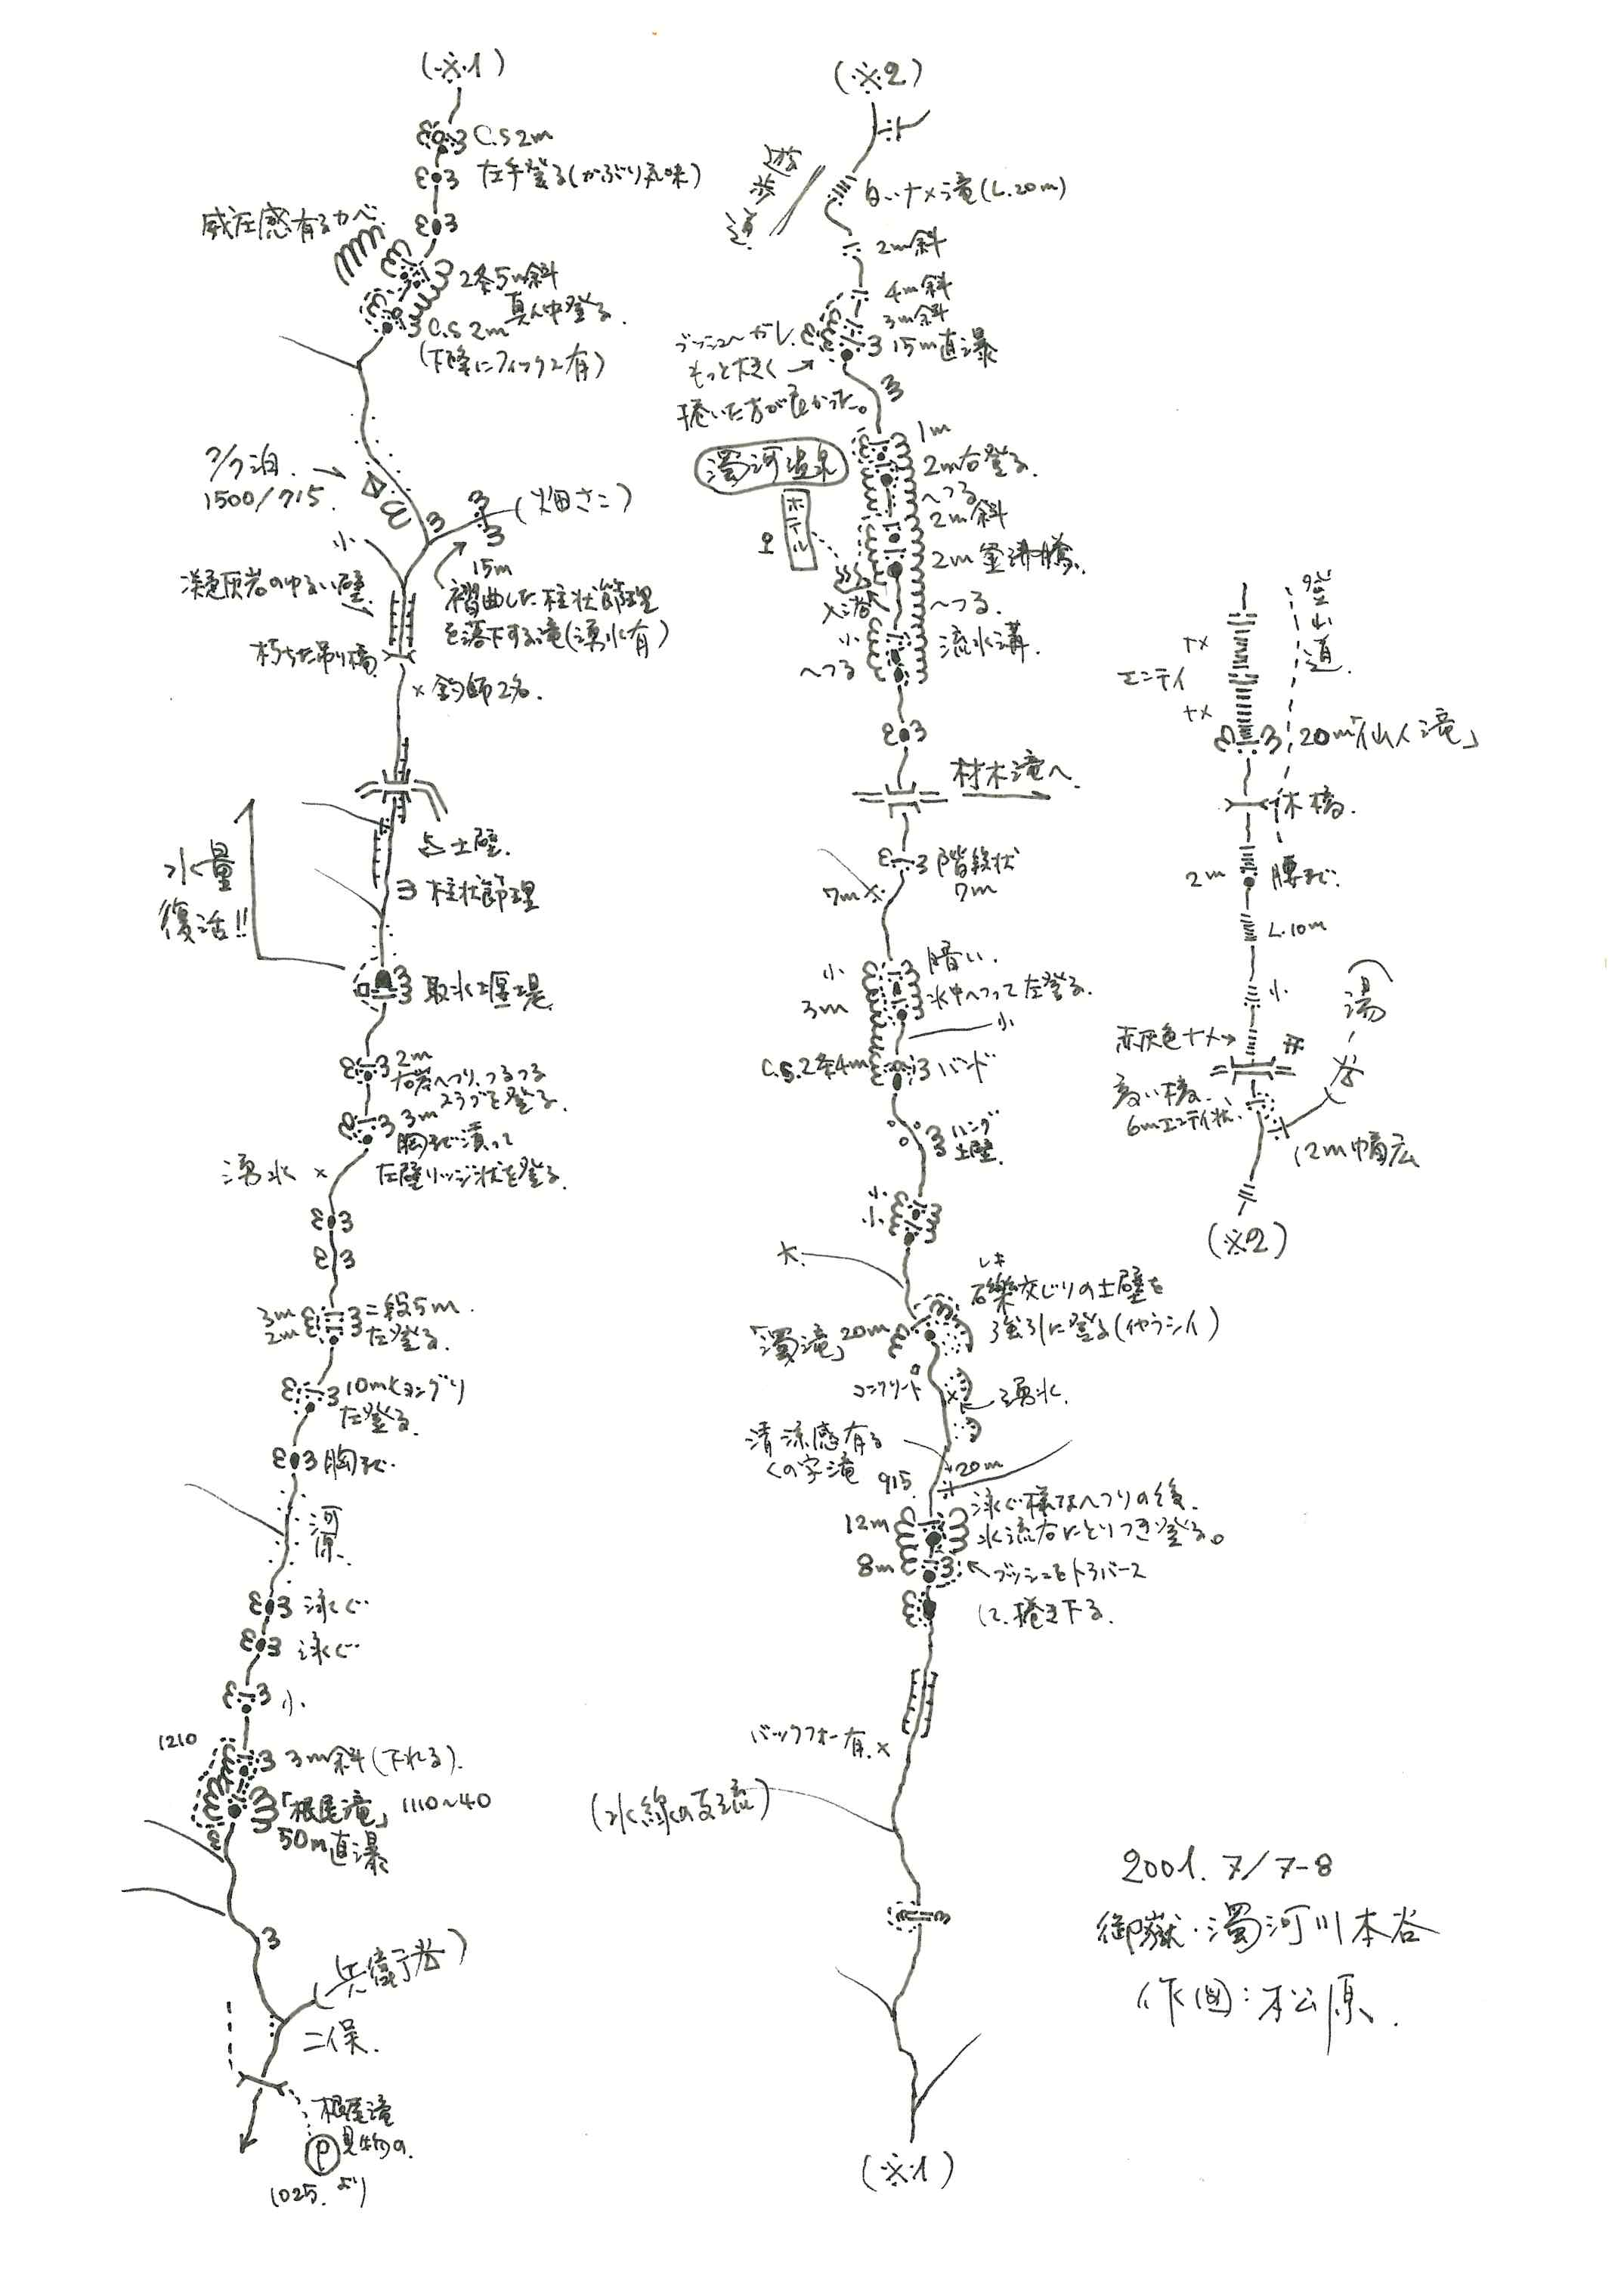 (※1)
C.S 2m
左手登る(かぶり気味)
威圧感有るカベ
2条5m斜
真ん中登る.
C.S 2m
(下降にフィックス有)
7/7泊.
1500/715.
(畑さこ)
小
15m
凝灰岩のゆるい壁
褶曲した柱状節理
を落下する滝(湧水有)
朽ちた吊り橋
× 釣師2名.
土壁.
水量
復活!!
柱状節理
取水堰堤
2m
右岩へつり、つるつる
スラブを登る.
3m
胸まで漬って
左壁リッジ状を登る.
湧水 ×
3m
2m
二段5m.
左登る.
10m
左登る.
胸まで.
河原.
泳ぐ
泳ぐ
小.
1210
3m斜(下れる).
「根尾滝」 1110~40
50m直瀑
(兵衛谷)
二俣.
根尾滝
見物の
P
1025. より
(※2)
遊歩道
白いナメ滝(L.20m)
2m斜
4m斜
3m斜
15m直瀑
ブッシュ~ガレ.
もっと大きく→
捲いた方が良かった。
1m
2m右登る.
濁河温泉
ホテル
へつる
2m斜
2m釜沸騰.
へつる.
入浴
小
へつる
流水溝.
材木滝へ
階段状
7m
7m
小
暗い.
3m
水中へつって左登る.
小
C.S.2条4m
バンド
ハング
土壁.
小.
小
大.
レキ
礫交じりの土壁を
強引に登る(イヤラシイ)
「濁滝」20m
コンクリート
湧水.
清涼感有る
くの字滝
915.
20m
泳ぐ様なへつりの後.
水流右にとりつき登る。
12m
8m
ブッシュをトラバース
して捲き下る.
バックフォー有.×
(水線の支流)
(※1)
登山道.
ナメ
エンテイ
ナメ
20m「仙人滝」
木橋.
2m
腰まで.
L.10m
小
赤灰色ナメ→
湯ノ谷
高い橋.
6mエンテイ状.
12m幅広
(※2)
2001. 7/7-8
御嶽・濁河川本谷
作図:松原.